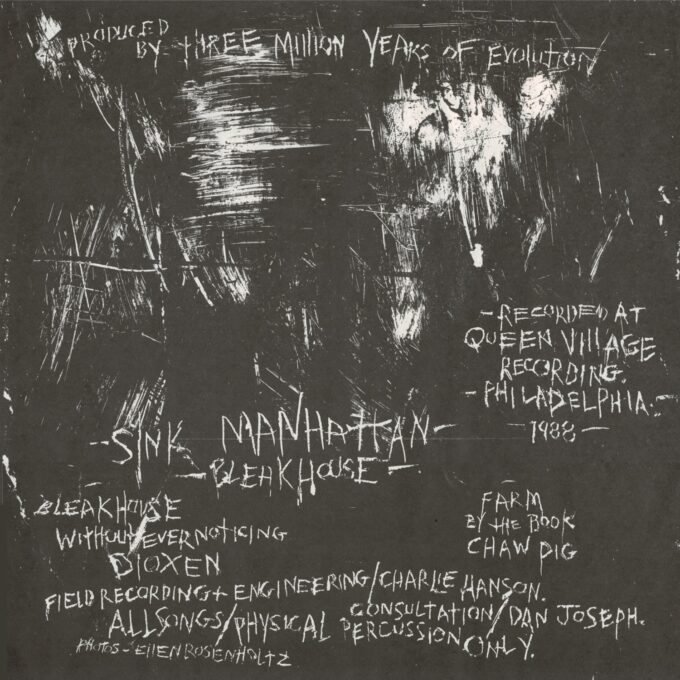 PRODUCED BY THREE MILLION YEARS OF EVOLUTION
- RECORDED AT
QUEEN VILLAGE
RECORDING.
- PHILADELPHIA. -
- 1988 -
- SINK MANHATTAN -
- BLEAKHOUSE -
BLEAKHOUSE
WITHOUT EVER NOTICING
DIOXEN
FARM
BY THE BOOK
CHAW PIG
FIELD RECORDING + ENGINEERING / CHARLIE HANSON.
CONSULTATION / DAN JOSEPH.
ALL SONGS / PHYSICAL PERCUSSION ONLY.
PHOTOS - ELLEN ROSENHOLTZ